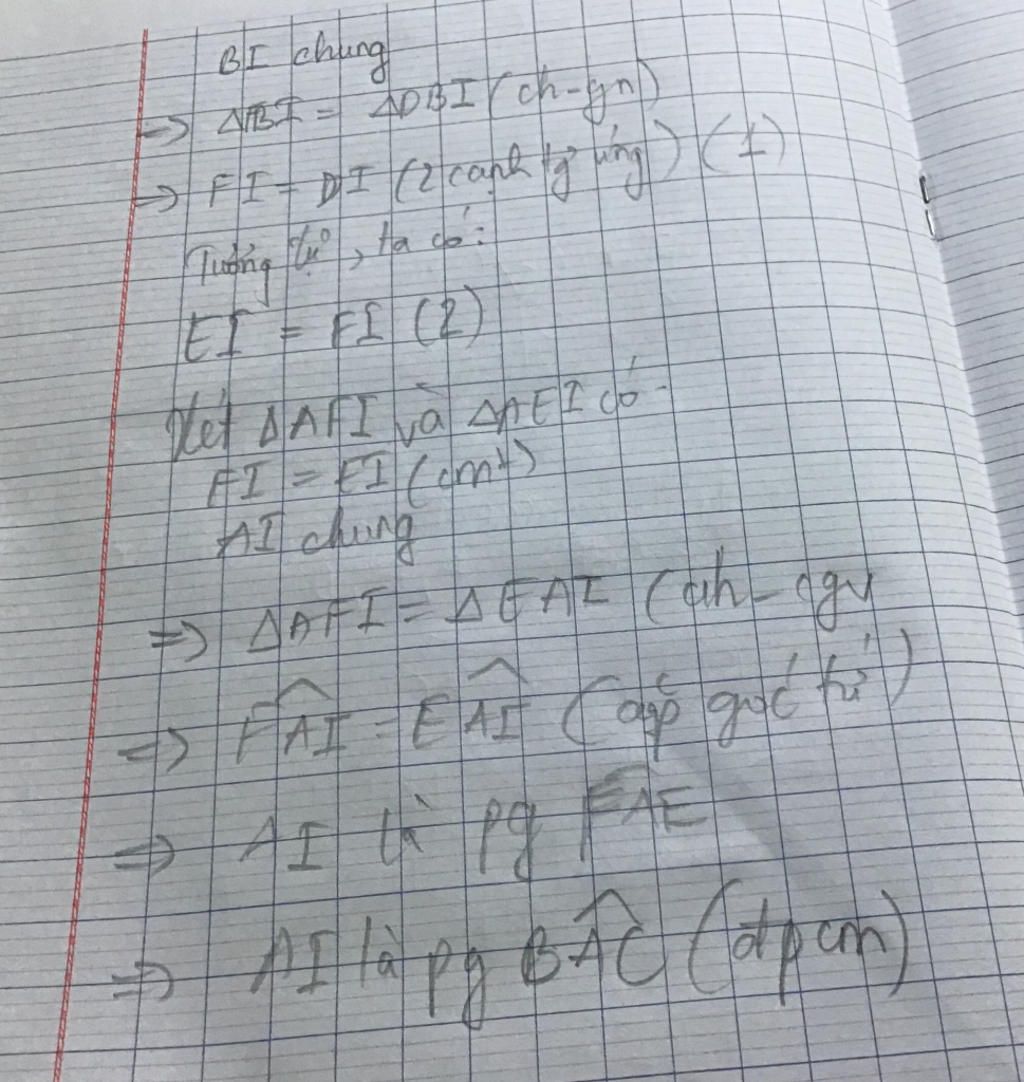 BI chung
=> ΔFBI = ΔDBI (ch-gn)
=> FI = DI (2 cạnh tg ứng) (1)
Tương tự, ta có:
EI = FI (2)
Xét ΔAFI và ΔAEI có
FI = EI (cmt)
AI chung
=> ΔAFI = ΔEAI (ch - cgv
=> FAI = EAI (góc tứ)
=> AI là pg FAE
=> AI là pg BAC (đpcm)